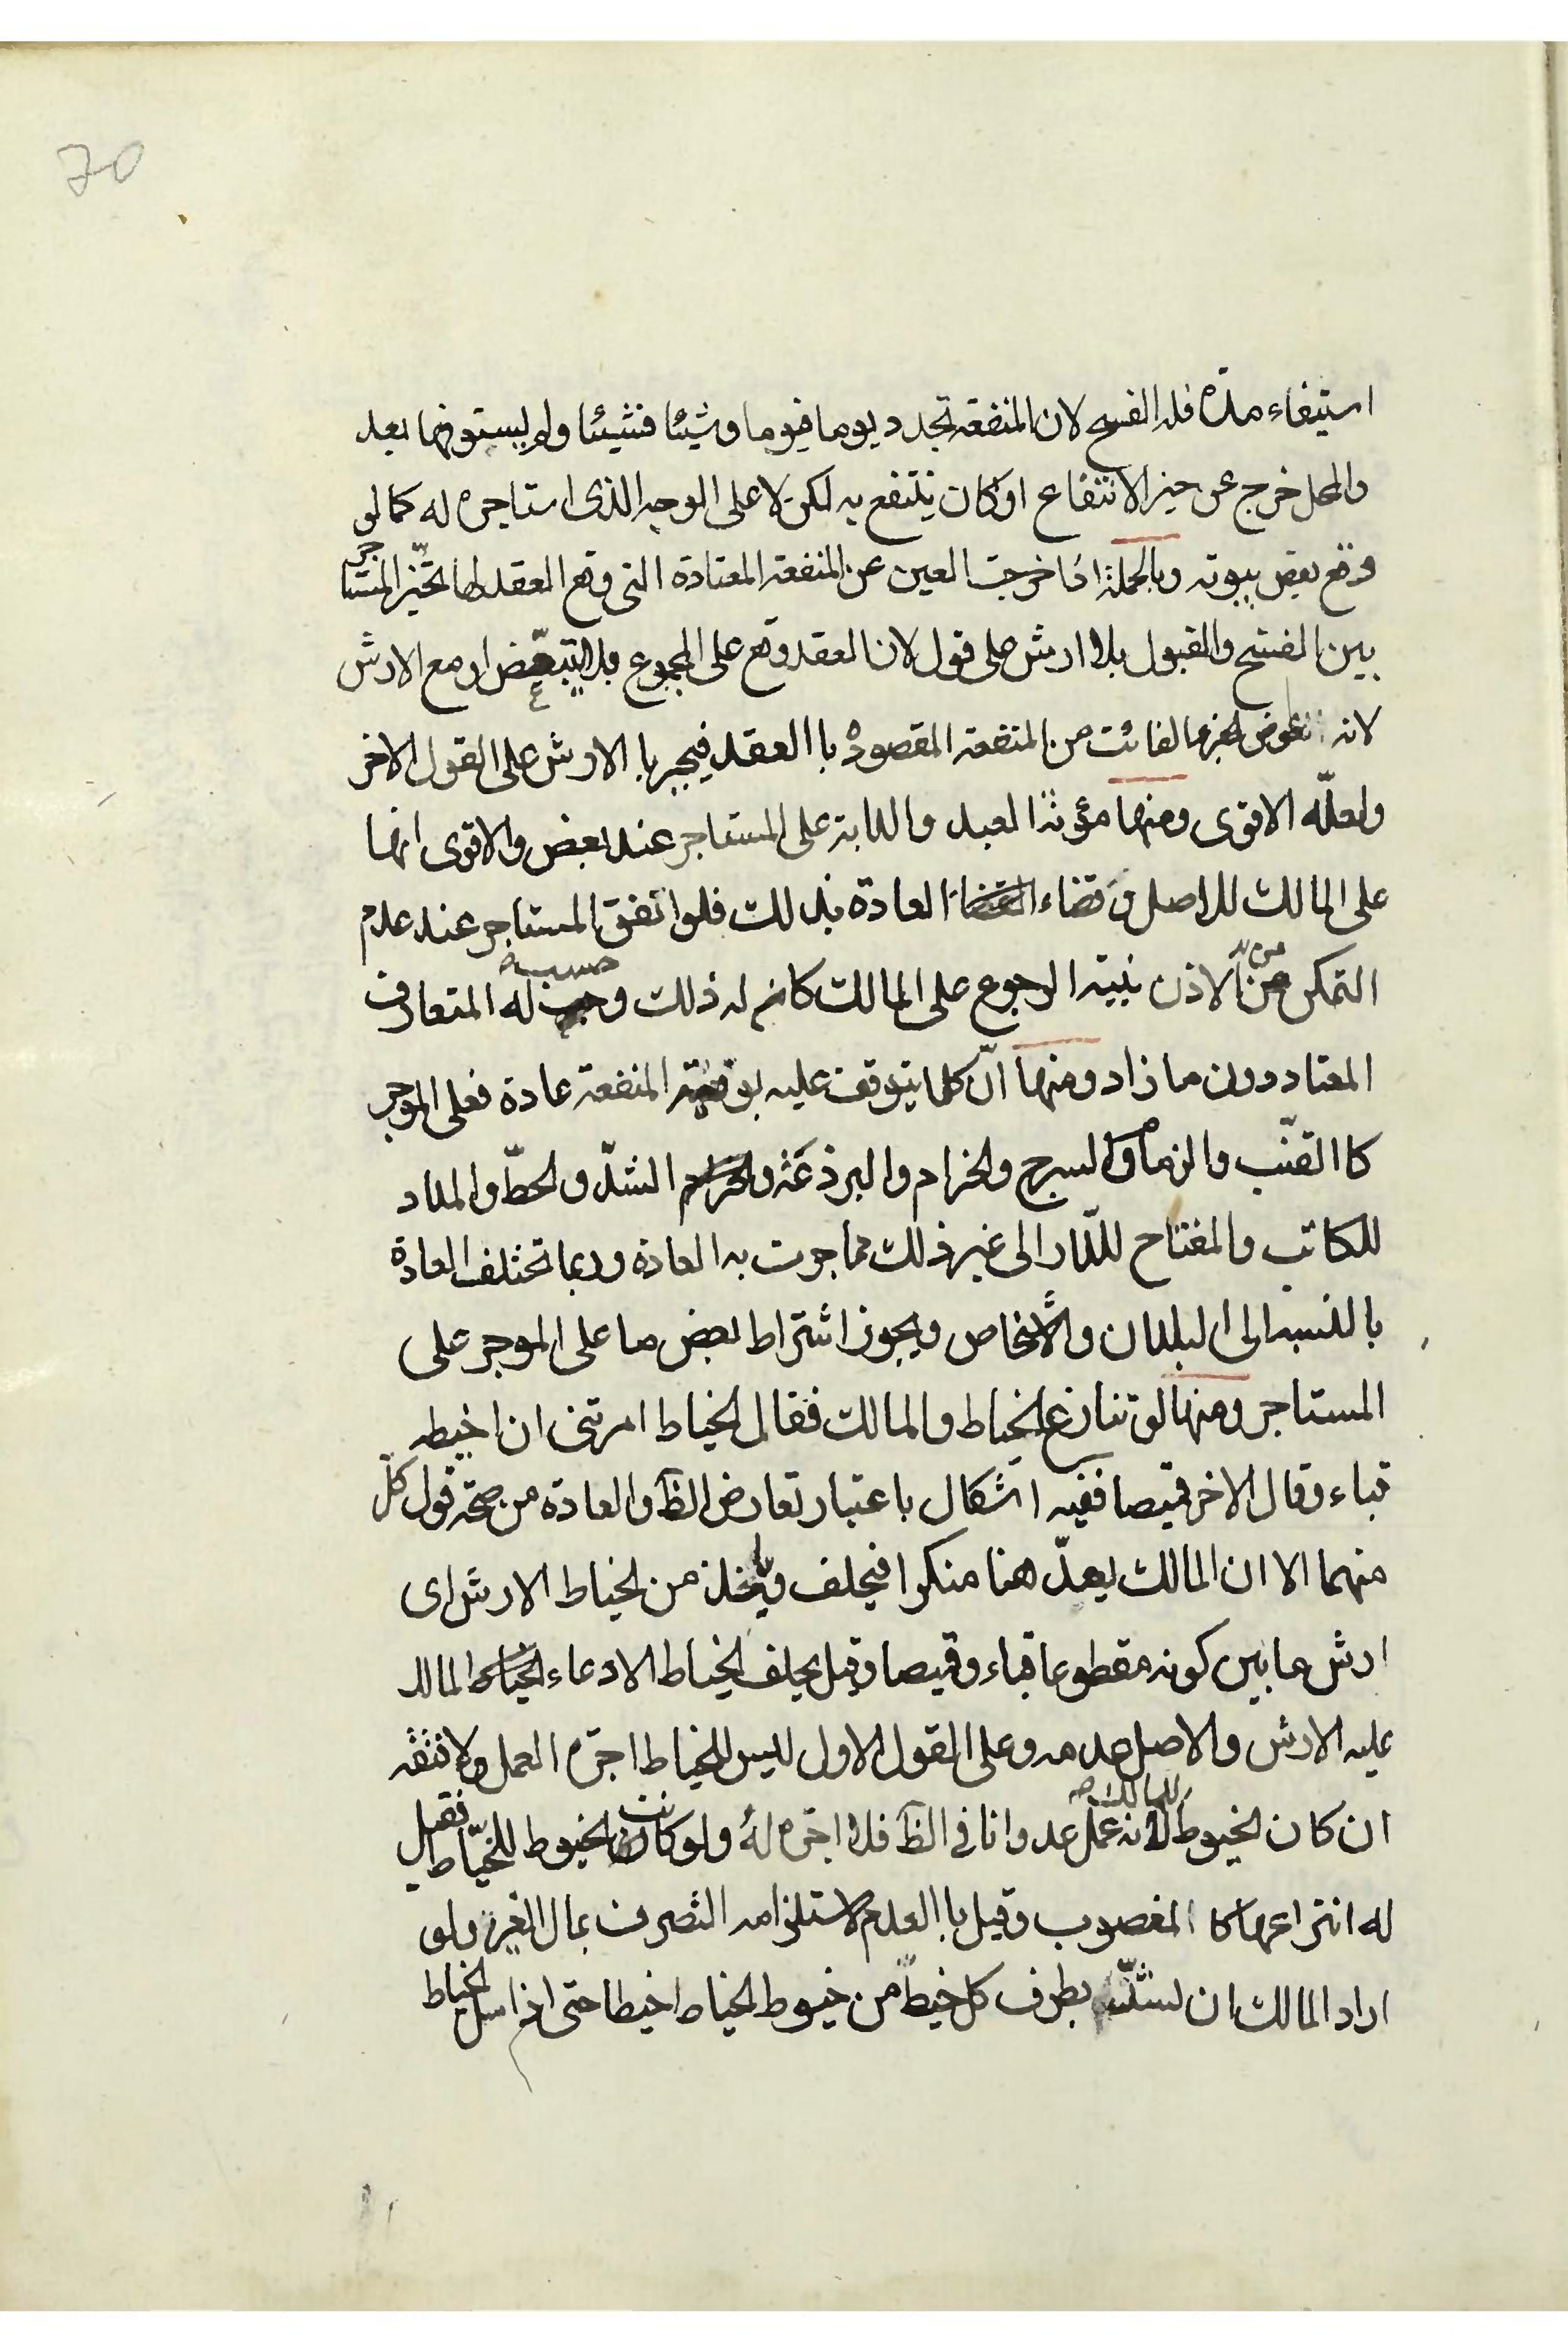 70
استيفاء مدة فله الفسخ لان المنفعة تجدد يوما فيوما وشيئا فشيئا ولم يستوفها بعد
والمحل خرج عن حيز الانتفاع او كان ينتفع به لكن لا على الوجه الذى استاجره له كما لو
وقع بعض بيوته وبالجملة اذا خرجت العين عن المنفعة المعتادة التى وقع العقد لها تخيّر المستاجر
بين الفسخ والقبول بلا ارش على قول لان العقد وقع على المجموع فله التبعّض او مع الارش
لانه عوض الجزء الفائت من المنفعة المقصودة با العقد فيجبر با الارش على القول الاخر
ولعلّه الاقوى ومنها مؤنة العبد والدابة على المستاجر عند بعض والاقوى انها
على المالك للاصل وقضاء العادة بذلك فلو انفق المستاجر عند عدم
التمكن من الاذن بنية الرجوع على المالك كان له ذلك وحسب له المتعارف
المعتاد دون ما زاد ومنها انّ كلما يتوقف عليه توفية المنفعة عادة فعلى الموجر
كا القتب والزمام والسرج والحزام والبرذعة و الشدّ والحطّ والمداد
للكاتب والمفتاح للدّار الى غير ذلك مما جرت به العادة وربما تختلف العادة
با لنسبة الى البلدان والاشخاص ويجوز اشتراط بعض ما على الموجر على
المستاجر ومنها لو تنازع الخياط والمالك فقال الخياط امرتنى ان اخيطه
قباء وقال الاخر قميصا ففيه اشكال با عتبار تعارض الظّ والعادة من صحة قول كلّ
منهما الا ان المالك يعدّ هنا منكرا فيحلف وياخذ من الخياط الارش اى
ارش ما بين كونه مقطوعا قباء وقميصا وقيل يحلف الخياط لادعاء المالك
عليه الارش والاصل عدمه وعلى القول الاول ليس للخياط اجرة العمل ولا نفقه
ان كان الخيوط للمالك لانه عمل عدوانا فى الظّ فلا اجره له ولو كانت الخيوط للخيّاط فقيل
له انتزاعها كا المغصوب وقيل با العدم لاستلزامه التصرف بمال الغير ولو
اراد المالك ان يشدّ بطرف كل خيط من خيوط الخياط خيطا حتى اذا سل الخياط